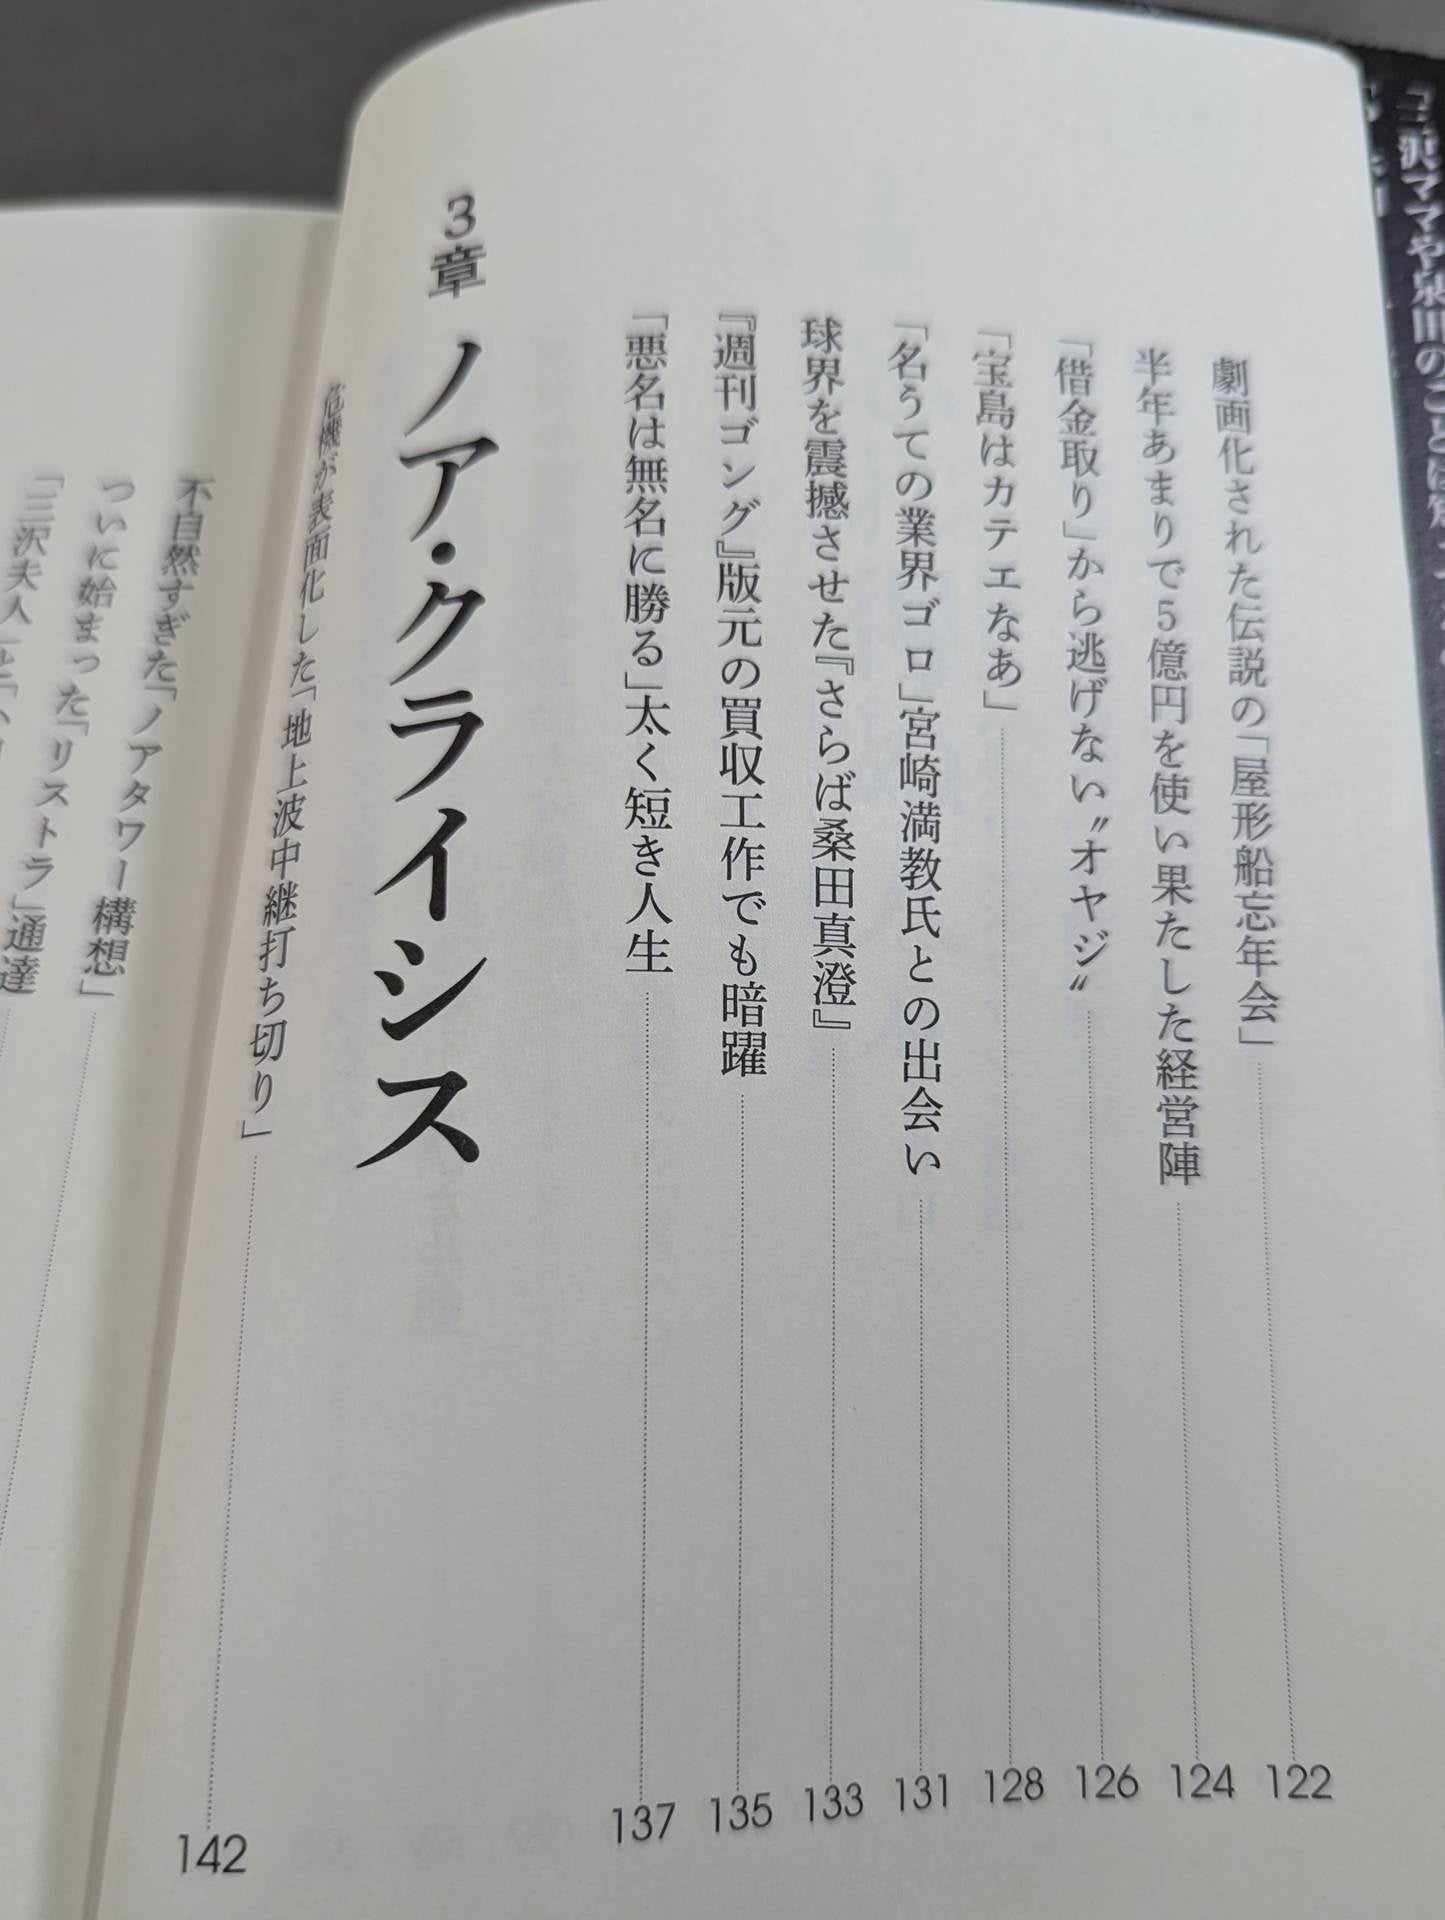 劇画化された伝説の「屋形船忘年会」 122
半年あまりで5億円を使い果たした経営陣 124
「借金取り」から逃げない〝オヤジ〟 126
「宝島はカテエなあ」 128
「名うての業界ゴロ」宮崎満教氏との出会い 131
球界を震撼させた『さらば桑田真澄』 133
『週刊ゴング』版元の買収工作でも暗躍 135
「悪名は無名に勝る」太く短き人生 137
3章 ノア・クライシス
危機が表面化した「地上波中継打ち切り」 142
不自然すぎた「ノアタワー構想」
ついに始まった「リストラ」通達
「三沢夫人」と
「三沢ママや泉田のことは